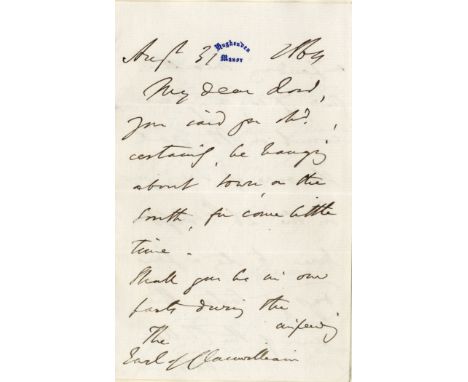 Hughenden
Manor
Augt 31 1864
My dear Lord,
You said you shd.,
certainly, be hanging
about town, or the
South, for some little
time.
Shall you be in our
parts during the
ensuing
The
Earl of Clanwilliam